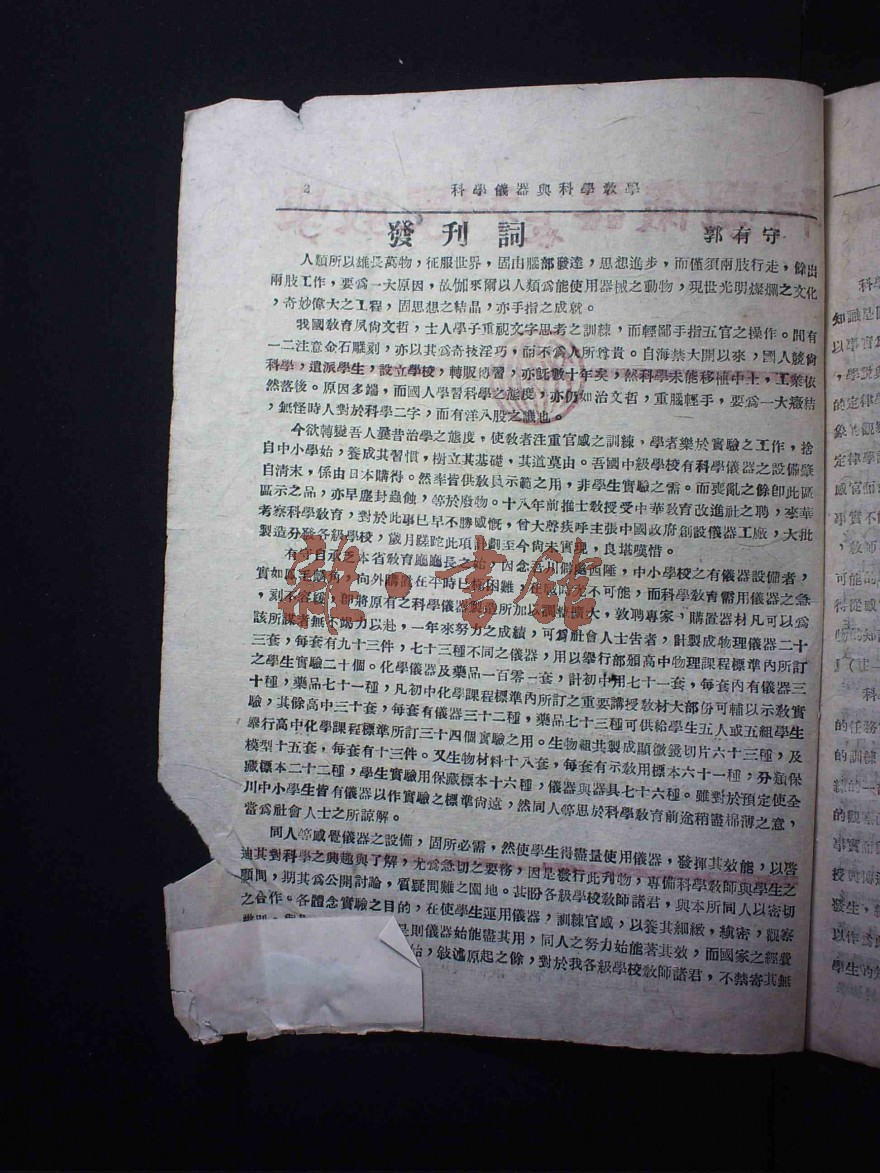 2 科學儀器與科學敎學
發刊詞 郭有守
人類所以雄長萬物，征服世界，固由腦部發達，思想進步，而僅須兩肢行走，餘出
兩肢工作，要爲一大原因，故伽來爾以人類爲能使用器械之動物，現世光明燦爛之文化
，奇妙偉大之工程，固思想之結晶，亦手指之成就。
我國敎育夙尙文哲，士人學子重視文字思考之訓練，而輕鄙手指五官之操作。間有
一二注意金石雕刻，亦以其爲奇技淫巧，而不爲人所尊貴。自海禁大開以來，國人競尙
科學，遣派學生，設立學校，轉販傳習，亦旣數十年矣，然科學未能移植中土，工業依
然落後。原因多端，而國人學習科學之態度，亦仍如治文哲，重腦輕手，要爲一大癥結
，無怪時人對於科學二字，而有洋八股之譏也。
今欲轉變吾人曩昔治學之態度，使敎者注重官感之訓練，學者樂於實驗之工作，捨
自中小學始，養成其習慣，樹立其基礎，其道莫由。吾國中級學校有科學儀器之設備肇
自清末，係由日本購得。然率皆供敎員示範之用，非學生實驗之需。而喪亂之餘卽此區
區示之品，亦早塵封蟲蝕，等於廢物。十八年前推士敎授受中華敎育改進社之聘，來華
考察科學敎育，對於此事已早不勝感慨，曾大聲疾呼主張中國政府創設儀器工廠，大批
製造分發各級學校，歲月蹉跎此項計劃至今尙未實現，良堪嘆惜。
有守自承乏本省敎育廳廳長之始，因念吾川僻處西陲，中小學校之有儀器設備者，
實如鳳毛麟角，向外購置在平時已極困難，在戰時尤不可能，而科學敎育需用儀器之急
，刻不容緩，卽將原有之科學儀器製造所加以調整擴大，敦聘專家，購置器材凡可以爲
該所謀者無不竭力以赴，一年來努力之成績，可爲社會人士吿者，計製成物理儀器二十
三套，每套有九十三件，七十三種不同之儀器，用以舉行部頒高中物理課程標準內所訂
之學生實驗二十個。化學儀器及藥品一百零一套，計初中用七十一套，每套內有儀器三
十種，藥品七十一種，凡初中化學課程標準內所訂之重要講授敎材大部份可輔以示敎實
驗，其餘高中三十套，每套有儀器三十二種，藥品七十三種可供給學生五人或五組學生
舉行高中化學課程標準所訂三十四個實驗之用。生物組共製成顯微鏡切片六十三種，及
模型十五套，每套有十三件。又生物材料十八套，每套有示敎用標本六十一種，分類保
藏標本二十二種，學生實驗用保藏標本十六種，儀器與器具七十六種。雖對於預定使全
川中小學生皆有儀器以作實驗之標準尙遠，然同人等思於科學敎育前途稍盡棉薄之意，
當爲社會人士之所諒解。
同人等感覺儀器之設備，固所必需，然使學生得盡量使用儀器，發揮其效能，以啓
迪其對科學之興趣與了解，尤爲急切之要務，因是發行此刊物，專備科學敎師與學生之
顧問，期其爲公開討論，質疑問難之園地。甚盼各級學校敎師諸君，與本所同人以密切
之合作。各體念實驗之目的，在使學生運用儀器，訓練官感，以養其細緻，縝密，觀察
是則儀器始能盡其用，同人之努力始能著其效，而國家之經費
始，敍述原起之餘，對於我各級學校敎師諸君，不禁寄其無
雜·書館